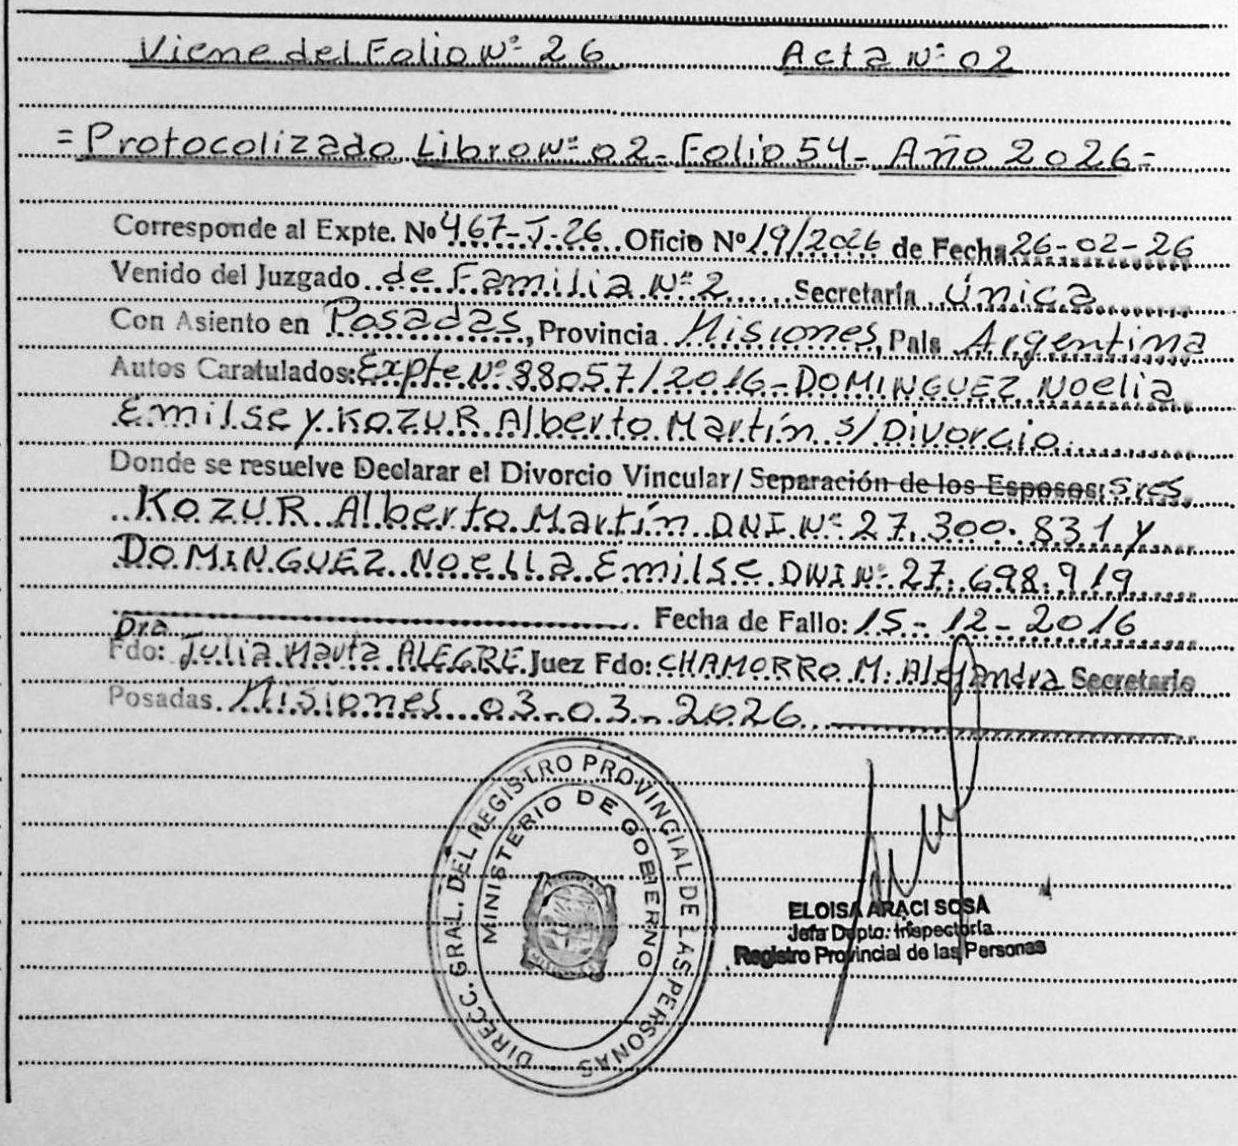 Viene del Folio Nº 26 Acta Nº 02
=Protocolizado Libro Nº 02- Folio 54- Año 2026=
Corresponde al Expte. Nº 467-J-26 Oficio Nº 19/2026 de Fecha 26-02-26
Venido del Juzgado de Familia Nº 2 Secretaría Única
Con Asiento en Posadas, Provincia Misiones, País Argentina
Autos Caratulados: Expte Nº 88057/2016- DOMINGUEZ Noelia
Emilse y KOZUR Alberto Martín s/ Divorcio
Donde se resuelve Declarar el Divorcio Vincular/ Separación de los Esposos: Sres.
KOZUR Alberto Martín DNI Nº 27.300.831 y
DOMINGUEZ Noelia Emilse DNI Nº 27.698.919
Fecha de Fallo: 15-12-2016
Dra.
Fdo: Julia Marta ALEGRE Juez Fdo: CHAMORRO M. Alejandra Secretario
Posadas. Misiones 03-03-2026
DIRECC. GRAL. DEL REGISTRO PROVINCIAL DE LAS PERSONAS
MINISTERIO DE GOBIERNO
ELOISA ARACI SOSA
Jefa Dpto. Inspectoría
Registro Provincial de las Personas